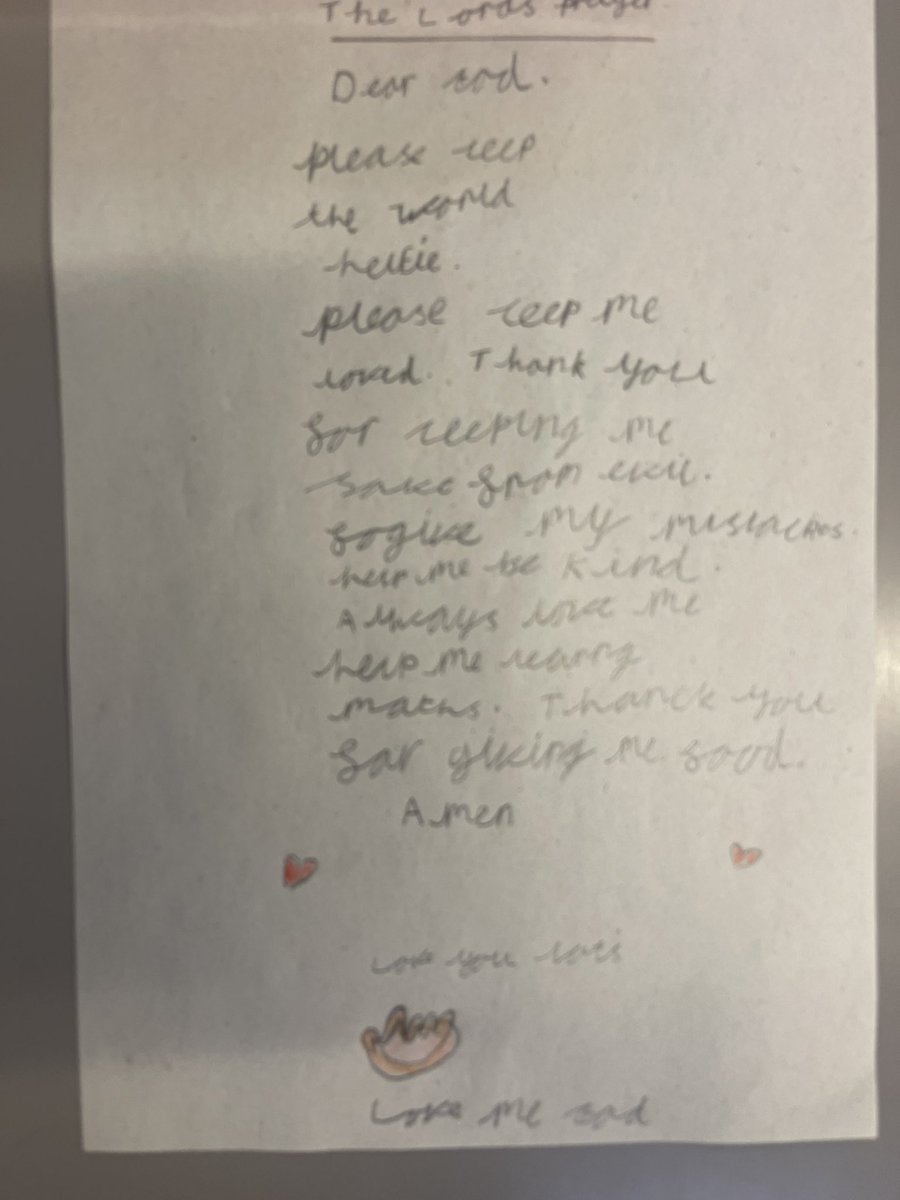 The Lords Prayer
Dear God.
please keep
the world
heltie.
please keep me
loved. Thank you
for keeping me
save from evil.
fogive my mistackes.
help me be kind.
Always love me
help me learng
maths. Thanck you
for giving me food.
Amen
Love you lots
Love me God